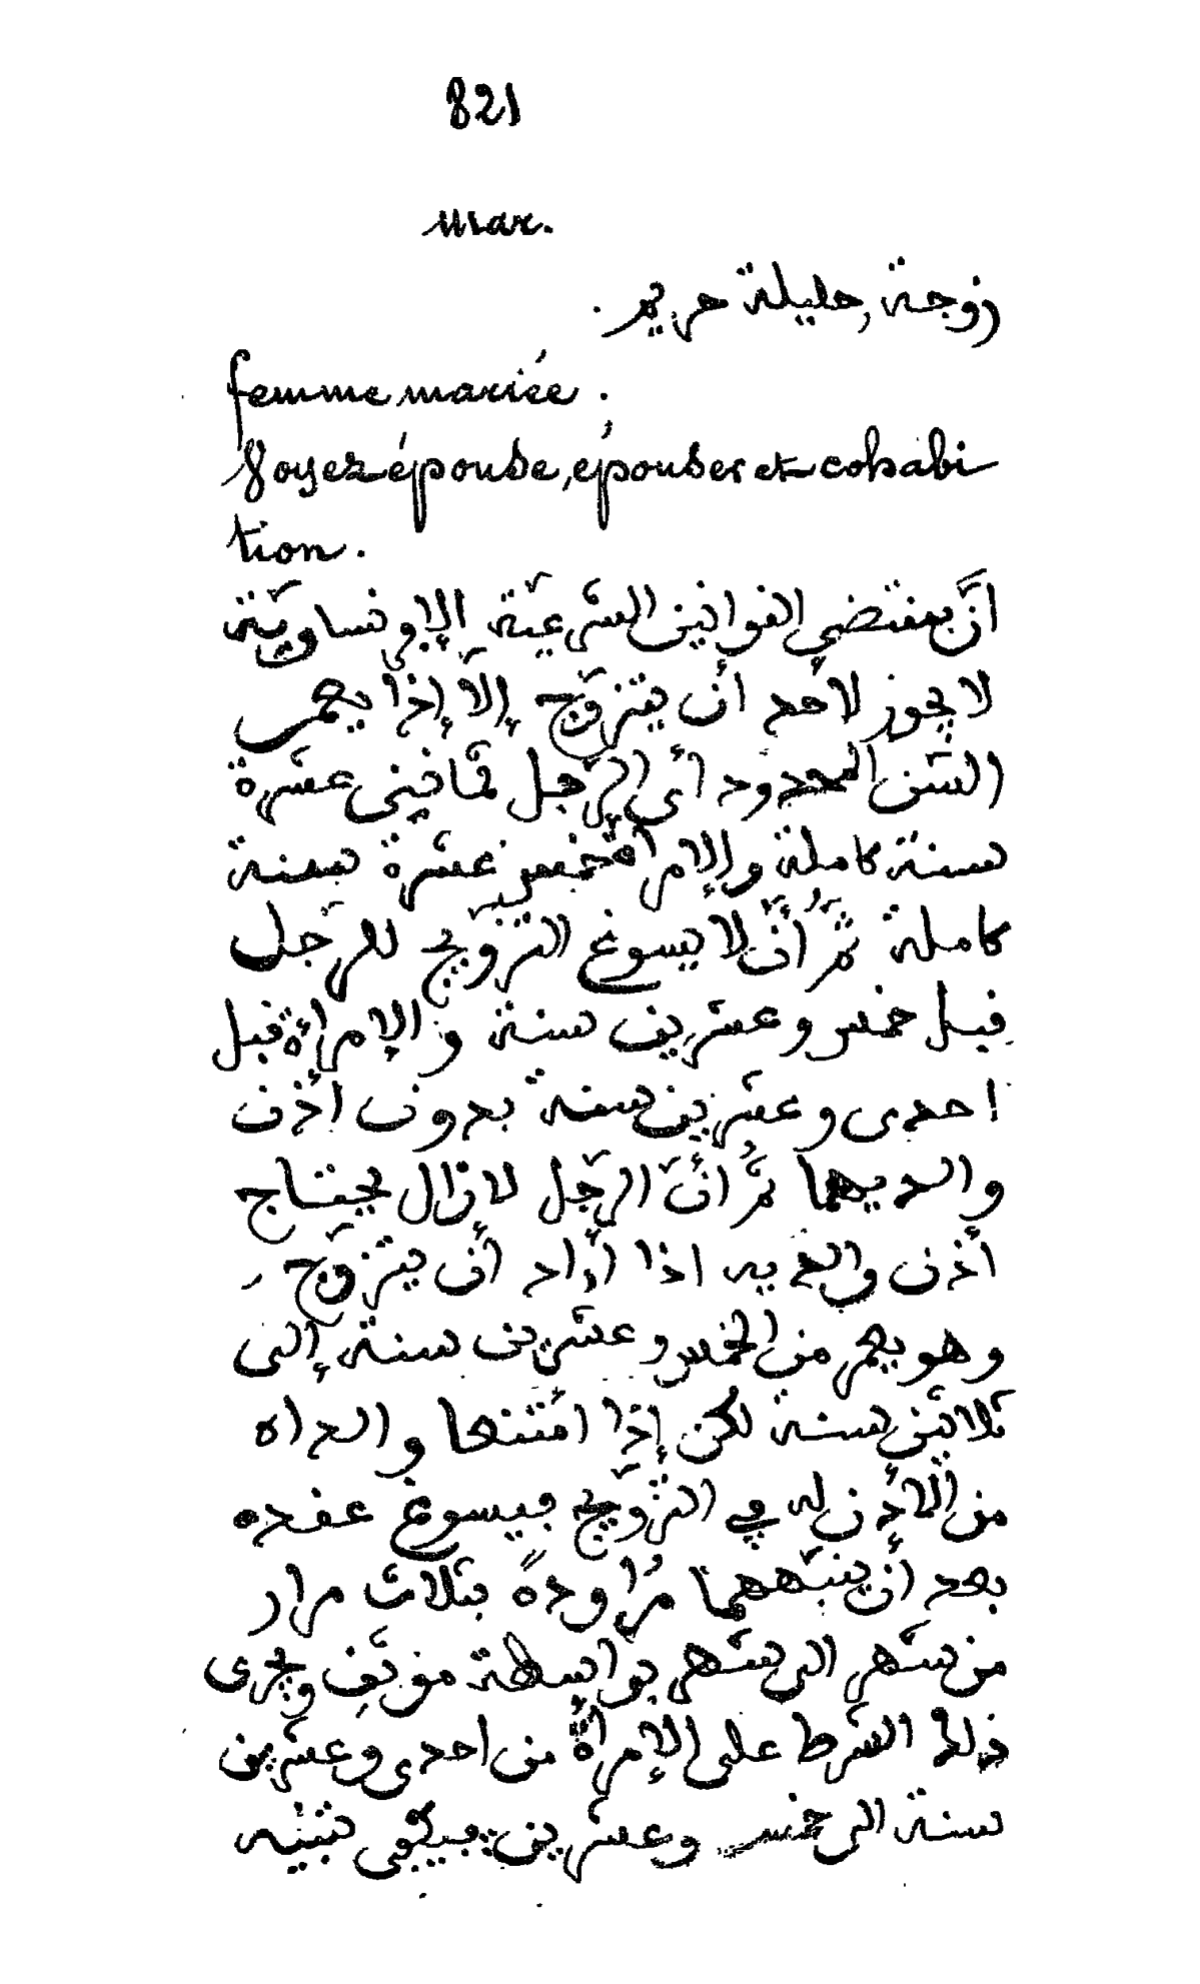 821
mar.
زوجة, حليلة حريم.
femme mariée.
Voyez épouse, épouser et cohabi
tion.
انّ بمقتضى القوانين الشرعيّة الإفرنساويّة
لا يجوز لأحد أن يتزوّج إلّا إذا يعمر
السّن المحدود أي الرّجل ثمانيني عشرة
سنة كاملة والإمرأة خمس عشرة سنة
كاملة ثمّ أنّ لا يسوغ التزوّيج للرّجل
قبل خمس وعشرين سنة والإمرأة قبل
احدى وعشرين سنة بدون أذن
والديهما ثمّ أنّ الرّجل لا زال يحتاج
أذن والديه اذا أراد أن يتزوّج
وهو يعمر من الخمس وعشرين سنة إلى
ثلاثين سنة لكن إذا امتنعا والداه
من الأذن له في التزوّيج فيسوغ عقده
بعد أن ينبّههما مُراودةً بثلاث مرار
من شهر الى شهر بواسطة موثّق ويجرى
ذلك الشّرط على الإمرأة من احدى وعشرين
سنة الى خمس وعشرين فيكفي تنبيه